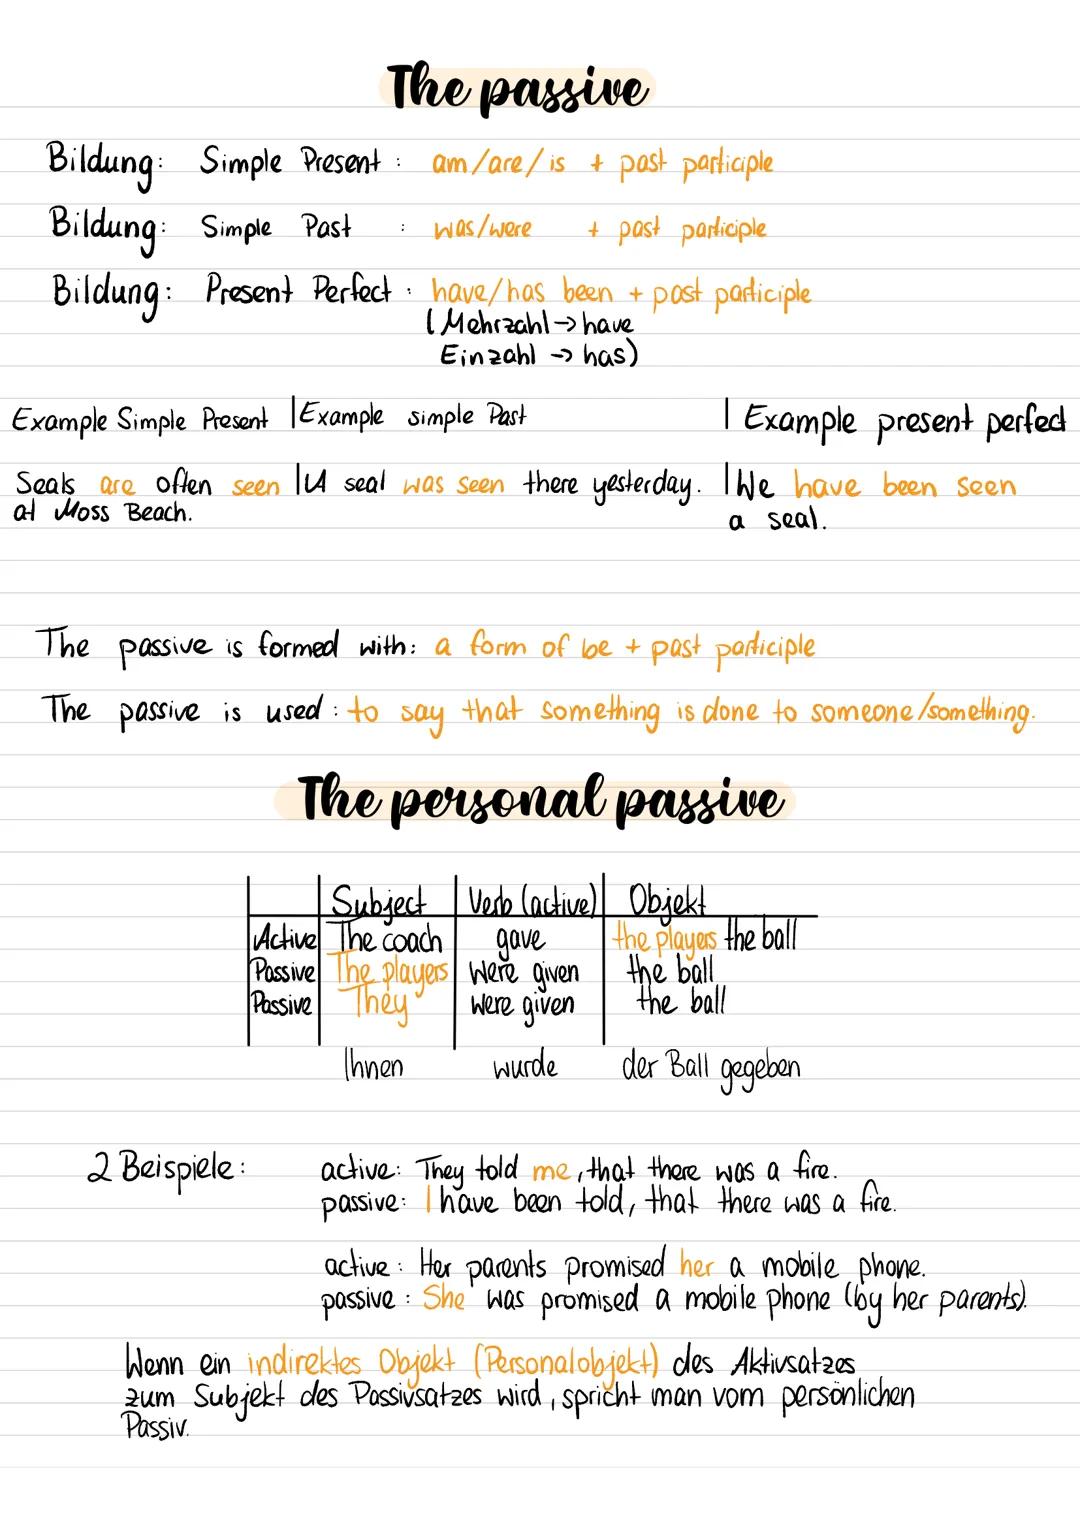 The passive
Bildung: Simple Present : am/are/is + past participle
Bildung: Simple Past : was/were + past participle
Bildung: Present Perfect : have/has been + past participle
(Mehrzahl → have
Einzahl → has)
Example Simple Present | Example simple Past | Example present perfect
Seals are often seen | A seal was seen there yesterday. | We have been seen
at Moss Beach. a seal.
The passive is formed with: a form of be + past participle
The passive is used : to say that something is done to someone/something.
The personal passive
Subject Verb (active) Objekt
Active The coach gave the players the ball
Passive The players were given the ball
Passive They were given the ball
Ihnen wurde der Ball gegeben
2 Beispiele: active: They told me, that there was a fire.
passive: I have been told, that there was a fire.
active : Her parents promised her a mobile phone.
passive : She was promised a mobile phone (by her parents).
Wenn ein indirektes Objekt (Personalobjekt) des Aktivsatzes
zum Subjekt des Passivsatzes wird, spricht man vom persönlichen
Passiv.